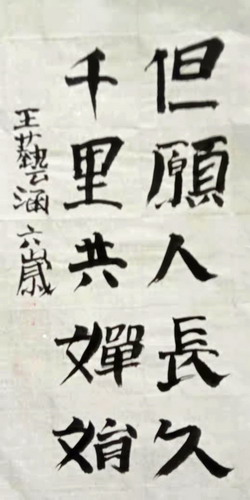 但願人長久
千里共嬋娟
王藝涵六歲